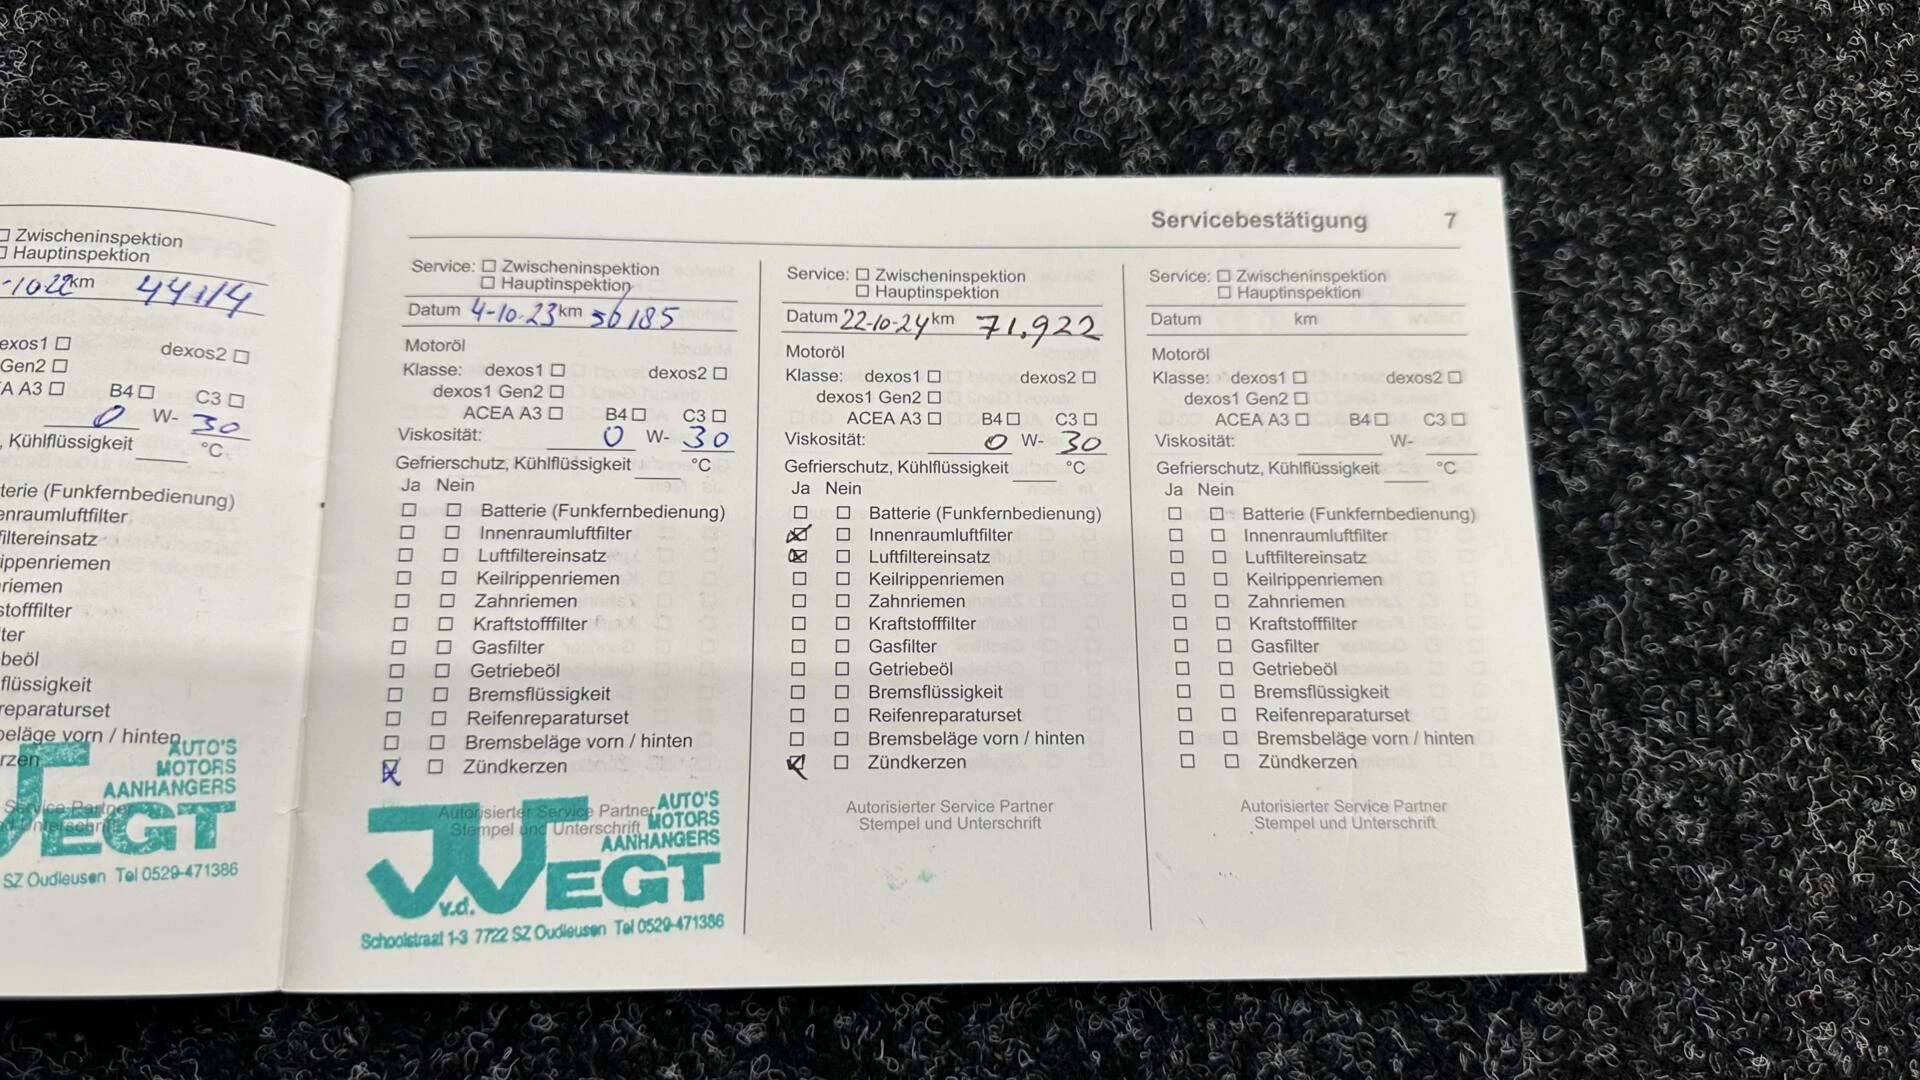 Zwischeninspektion
Hauptinspektion
-10-22 km
dexos1 dexos2
Gen2
A3 B4 C3
0 W- 30
, Kühlflüssigkeit °C
terie (Funkfernbedienung)
enraumluftfilter
filtereinsatz
ippenriemen
riemen
stofffilter
ter
beöl
flüssigkeit
reparaturset
beläge vorn / hinten
rzen
AUTO'S
MOTORS
AANHANGERS
Service Partner
EGT
SZ Oudleusen Tel 0529-471386
Servicebestätigung 7
Service: Zwischeninspektion
Hauptinspektion
Datum 4-10-23 km 56185
Motoröl
Klasse: dexos1 dexos2
dexos1 Gen2
ACEA A3 B4 C3
Viskosität: 0 W- 30
Gefrierschutz, Kühlflüssigkeit °C
Ja Nein
Batterie (Funkfernbedienung)
Innenraumluftfilter
Luftfiltereinsatz
Keilrippenriemen
Zahnriemen
Kraftstofffilter
Gasfilter
Getriebeöl
Bremsflüssigkeit
Reifenreparaturset
Bremsbeläge vorn / hinten
Zündkerzen
Autorisierter Service Partner
Stempel und Unterschrift
AUTO'S
MOTORS
AANHANGERS
v.d. WEGT
Schoolstraat 1-3 7722 SZ Oudleusen Tel 0529-471386
Service: Zwischeninspektion
Hauptinspektion
Datum 22-10-24 km 71.922
Motoröl
Klasse: dexos1 dexos2
dexos1 Gen2
ACEA A3 B4 C3
Viskosität: 0 W- 30
Gefrierschutz, Kühlflüssigkeit °C
Ja Nein
Batterie (Funkfernbedienung)
Innenraumluftfilter
Luftfiltereinsatz
Keilrippenriemen
Zahnriemen
Kraftstofffilter
Gasfilter
Getriebeöl
Bremsflüssigkeit
Reifenreparaturset
Bremsbeläge vorn / hinten
Zündkerzen
Autorisierter Service Partner
Stempel und Unterschrift
Service: Zwischeninspektion
Hauptinspektion
Datum km
Motoröl
Klasse: dexos1 dexos2
dexos1 Gen2
ACEA A3 B4 C3
Viskosität: W-
Gefrierschutz, Kühlflüssigkeit °C
Ja Nein
Batterie (Funkfernbedienung)
Innenraumluftfilter
Luftfiltereinsatz
Keilrippenriemen
Zahnriemen
Kraftstofffilter
Gasfilter
Getriebeöl
Bremsflüssigkeit
Reifenreparaturset
Bremsbeläge vorn / hinten
Zündkerzen
Autorisierter Service Partner
Stempel und Unterschrift